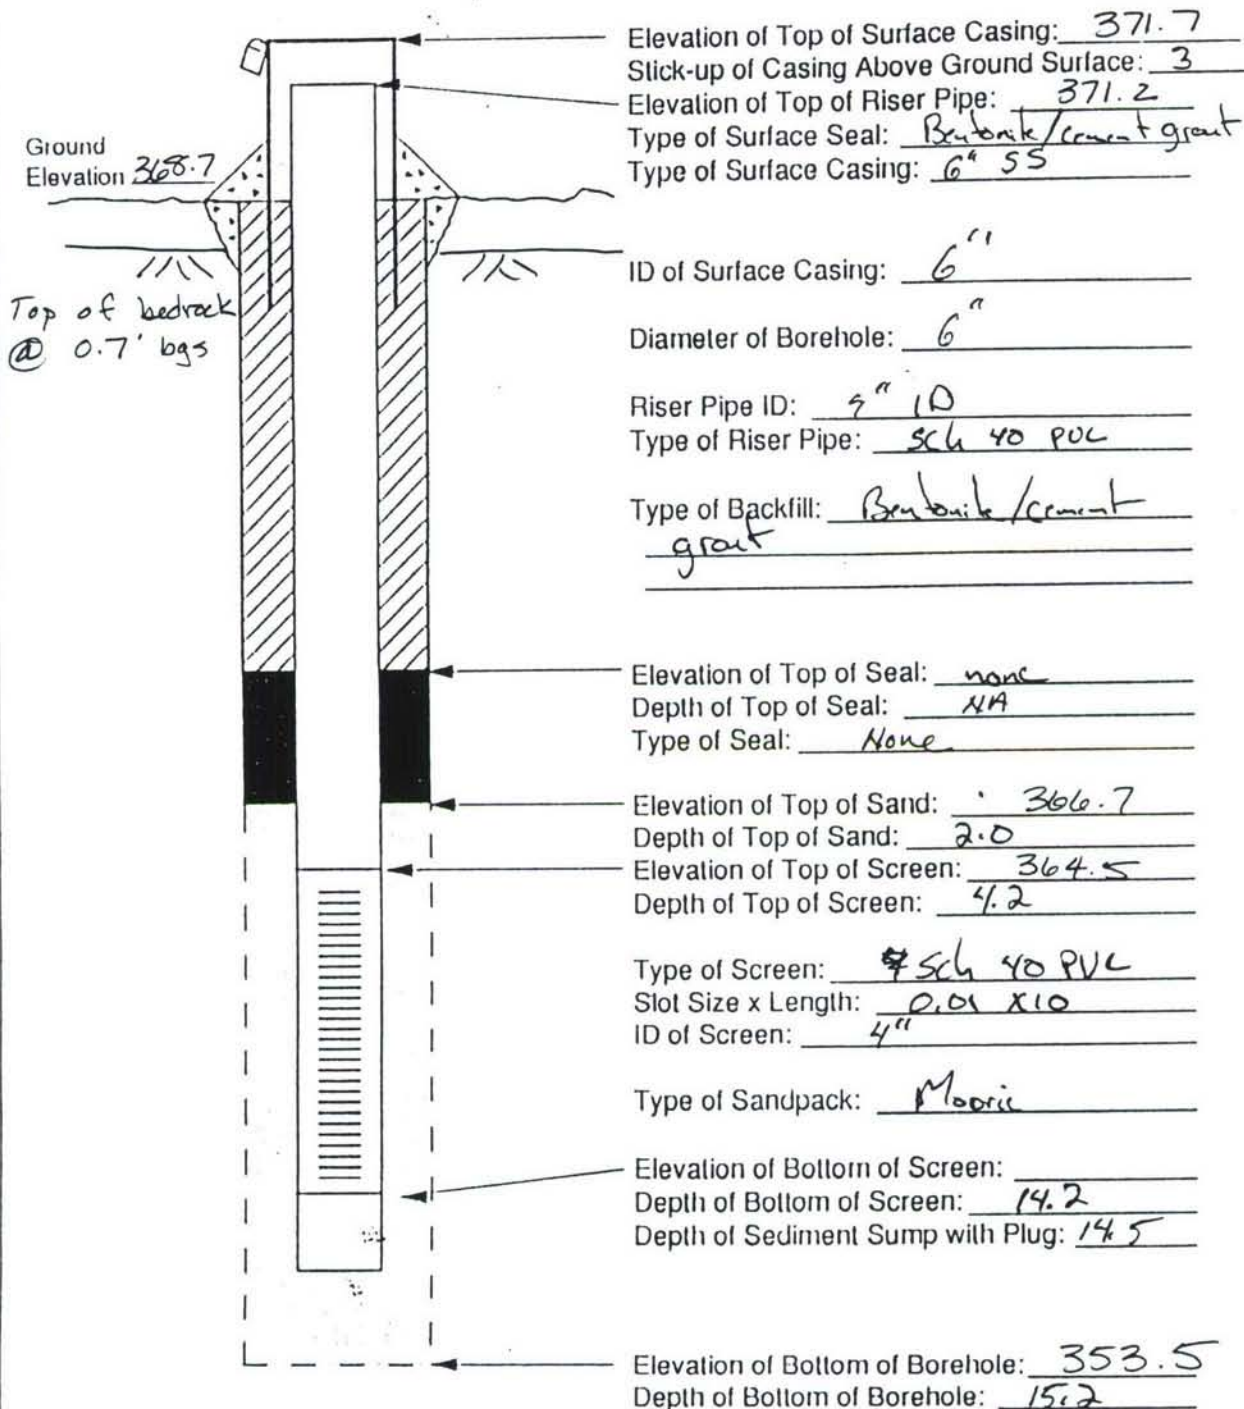 Elevation of Top of Surface Casing: 371.7
Stick-up of Casing Above Ground Surface: 3
Elevation of Top of Riser Pipe: 371.2
Type of Surface Seal: Bentonite/cement grout
Type of Surface Casing: 6" SS
Ground
Elevation 368.7
ID of Surface Casing: 6"
Top of bedrock
@ 0.7' bgs
Diameter of Borehole: 6"
Riser Pipe ID: 4" ID
Type of Riser Pipe: Sch 40 PVC
Type of Backfill: Bentonite/cement
grout
Elevation of Top of Seal: none
Depth of Top of Seal: NA
Type of Seal: None
Elevation of Top of Sand: 366.7
Depth of Top of Sand: 2.0
Elevation of Top of Screen: 364.5
Depth of Top of Screen: 4.2
Type of Screen: Sch 40 PVC
Slot Size x Length: 0.01 x10
ID of Screen: 4"
Type of Sandpack: Moorie
Elevation of Bottom of Screen:
Depth of Bottom of Screen: 14.2
Depth of Sediment Sump with Plug: 14.5
Elevation of Bottom of Borehole: 353.5
Depth of Bottom of Borehole: 15.2